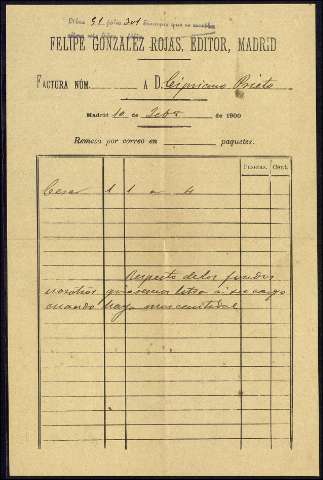 Libro 51 folio 301 Siempre que se escriba
FELIPE GONZÁLEZ ROJAS, EDITOR, MADRID
FACTURA NÚM. A D. Cipriano Prieto
Madrid 10 de Feb de 1900
Remesa por correo en paquetes.
Pesetas. Cént.
1 1 a 4
Respecto de los fondos
nosotros letra á su cargo
cuando haya mas cantidad